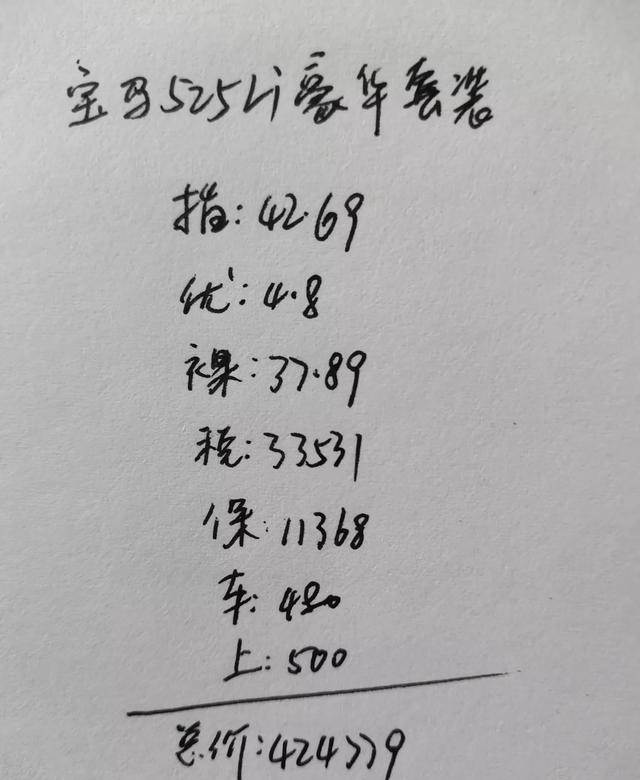 宝马525Li豪华套装
指:42.69
优:4.8
裸:37.89
税:33531
保:11368
车:480
上:500
总价:424779